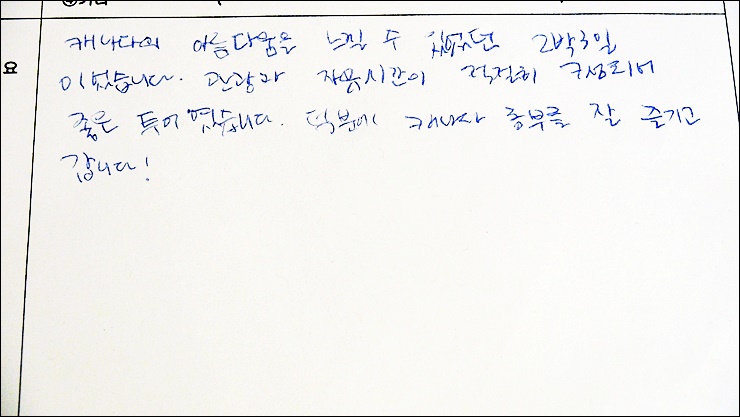 캐나다의 아름다움을 느낄 수 있었던 2박3일
이었습니다. 관광과 자유시간이 적절히 구성되어
좋은 투어였습니다. 덕분에 캐나다 동부를 잘 즐기고
갑니다!
요